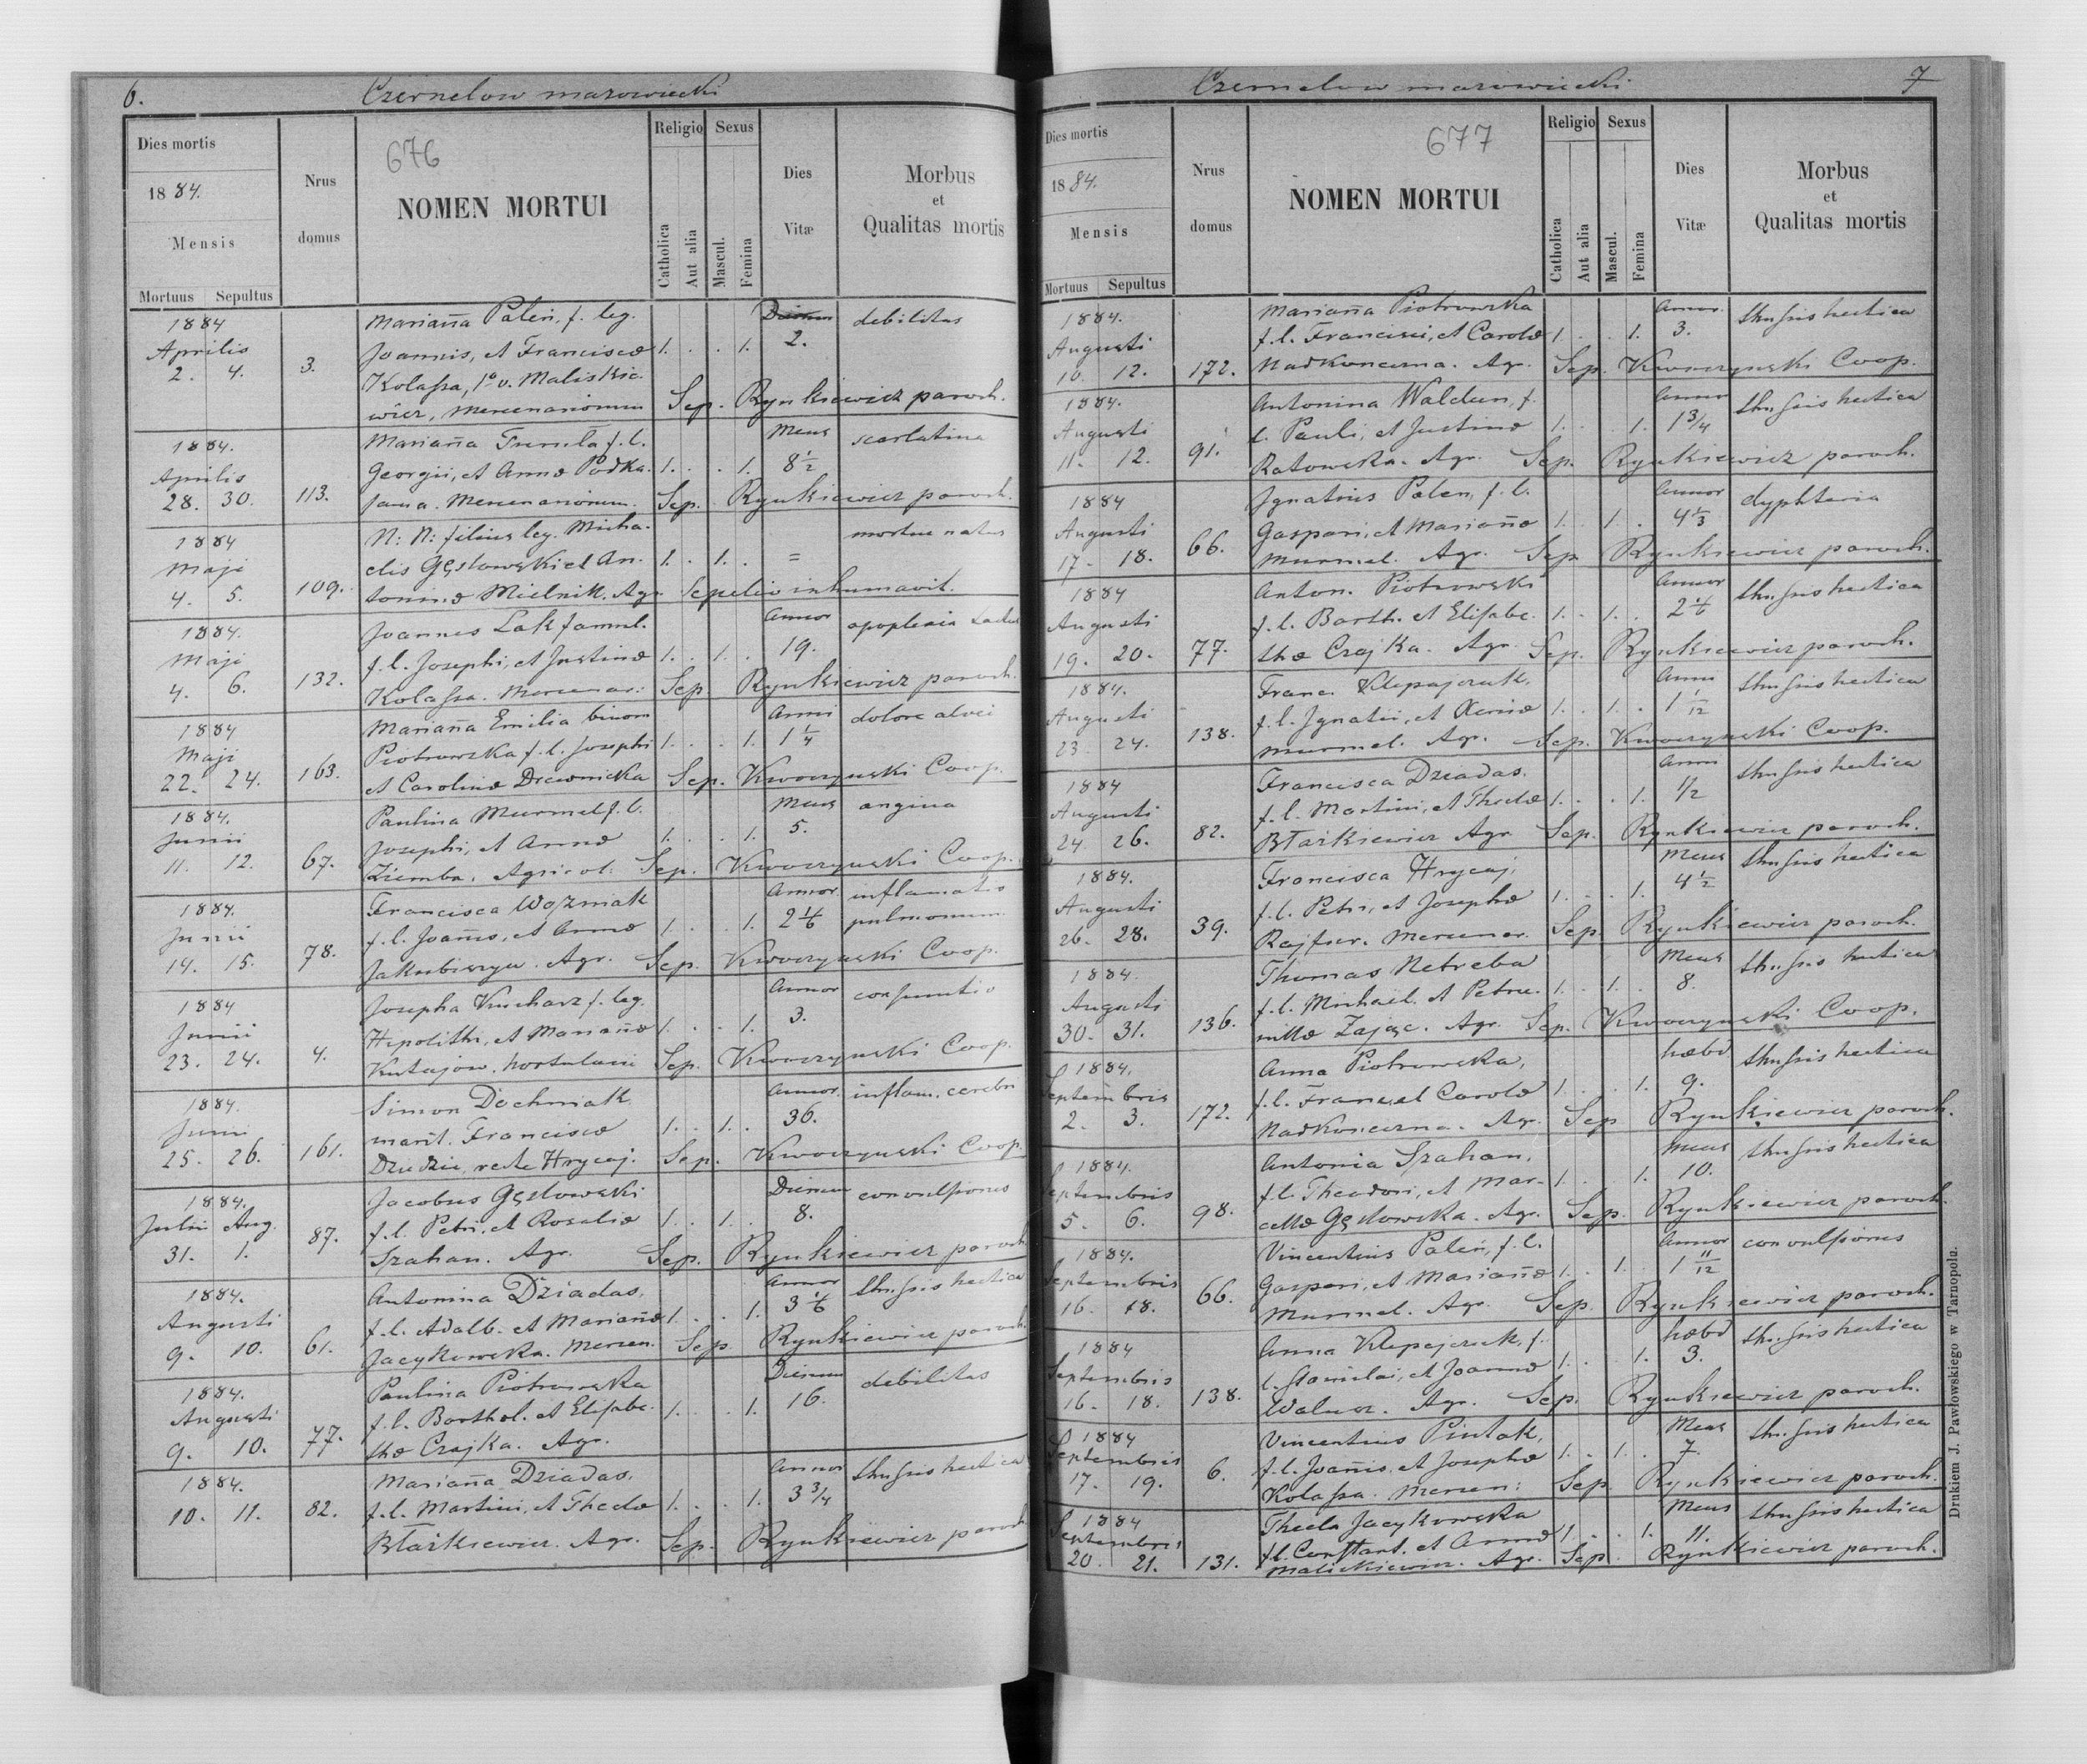 6.
Czernelow mazowiecki
Dies mortis
1884.
Mensis
Mortuus Sepultus
Nrus domus
676
NOMEN MORTUI
Religio
Catholica
Aut alia
Sexus
Mascul.
Femina
Dies Vitæ
Morbus
et
Qualitas mortis
1884 Mariana Paleń, f. leg. Dierum debilitas
Aprilis Joannis, et Francisca 1. . . 1. 2.
2. 4. 3. Kolassa, 1º v. Maliskie-
wicz, mercenariorum Sep. Rynkiewicz paroch.
1884. Mariana f. l. Mens scarlatina
Aprilis Georgii, et Anna Podka- 1. . . 1. 8½
28. 30. 113. Mercenariorum. Sep. Rynkiewicz paroch.
1884 N: N: filius leg. Micha- mortuu natus
Maji elis Gęstowski et An- 1. . 1. . =
4. 5. 109. Mielnik. Agr. Sepelivi inhumavit.
1884. Joannes Łak famul. Annor apoplexia
Maji f. l. Josephi, et Justina 1. . 1. . 19.
4. 6. 132. Kolassa. Mercenar: Sep Rynkiewicz paroch.
1884 Mariana Emilia binom Anni dolore alvei
Maji Piotrowska f. l. Josephi 1. . . 1. 1¼
22. 24. 163. et Carolina Drewnicka Sep. Kworzynski Coop.
1884. Paulina Murmel f. l. Mens angina
Junii Josephi, et Anna 1. . . 1. 5.
11. 12. 67. Ziemba. Agricol: Sep. Kworzynski Coop.
1884. Francisca Wozniak Annor inflamatio
Junii f. l. Joañis, et Anna 1. . . 1. 2 1/6 pulmonum
14. 15. 78. Agr. Sep. Kworzynski Coop.
1884 Josepha Kucharz f. leg. Annor consumtio
Junii Hipolithi, et Mariana 1. . . 1. 3.
23. 24. 4. Kutajow. hortulani Sep. Kworzynski Coop.
1884. Simon Dochniak Annor. inflam. cerebri
Junii marit. Francisca 1. . 1. . 36.
25. 26. 161. recte Hrycaj. Sep. Kworzynski Coop.
1884. Jacobus Gęstowski Dierum convulsiones
Julii Aug. f. l. Petri, et Rosalia 1. . 1. . 8.
31. 1. 87. Szahan. Agr. Sep. Rynkiewicz paroch.
1884. Antonina Dziadas, Annor thusis hectica
Augusti f. l. Adalb. et Mariana 1. . . 1. 3 1/6
9. 10. 61. Jacykowska. Mercen. Sep. Rynkiewicz paroch.
1884. Paulina Piotrowska Dierum debilitas
Augusti f. l. Barthol. et Elisabe- 1. . . 1. 16.
9. 10. 77. tha Czajka. Agr.
1884. Mariana Dziadas, Annor thusis hectica
10. 11. 82. f. l. Martini, et Thecla 1. . . 1. 3¾
Błażkiewicz. Agr. Sep. Rynkiewicz paroch
Czernelow mazowiecki
7
Dies mortis
1884.
Mensis
Mortuus Sepultus
Nrus domus
677
NOMEN MORTUI
Religio
Catholica
Aut alia
Sexus
Mascul.
Femina
Dies Vitæ
Morbus
et
Qualitas mortis
1884. Mariana Piotrowska Annor. thusis hectica
Augusti f. l. Francisci, et Carola 1. . . 1. 3.
10. 12. 172. Nadkonczna. Agr. Sep. Kworzynski Coop.
1884. Antonina Waldun, f. Annor thusis hectica
Augusti l. Pauli, et Justina 1. . . 1. 1¾
11. 12. 91. Ratowska. Agr. Sep. Rynkiewicz paroch.
1884 Ignatius Palen, f. l. Annor dyphteria
Augusti Gaspari, et Mariana 1. . 1. . 4 1/3
17. 18. 66. Murmel. Agr. Sep Rynkiewicz paroch.
1884 Anton. Piotrowski Annor thusis hectica
Augusti f. l. Barth. et Elisabe- 1. . 1. . 2 1/6
19. 20. 77. tha Czajka. Agr. Sep. Rynkiewicz paroch.
1884. Franc. Klepajczuk, Anni thusis hectica
Augusti f. l. Ignatii, et Xenia 1. . 1. . 1 1/12
23. 24. 138. Murmel. Agr. Sep. Kworzynski Coop.
1884 Francisca Dziadas. Anni thusis hectica
Augusti f. l. Martini, et Thecla 1. . . 1. 1/2
24. 26. 82. Błażkiewicz Agr Sep. Rynkiewicz paroch.
1884. Francisca Hrycaj, Mens thusis hectica
Augusti f. l. Petri, et Josepha 1. . . 1. 4½
26. 28. 39. Mercenar. Sep. Rynkiewicz paroch.
1884. Thomas Netreba Mens thusis hectica
Augusti f. l. Michael. et Petro- 1. . 1. . 8.
30. 31. 136. nilla Zając. Agr. Sep. Kworzynski Coop.
1884. Anna Piotrowska, hæbd thusis hectica
Septembris f. l. Franc. et Carola 1. . . 1. 9.
2. 3. 172. Nadkonczna. Agr. Sep Rynkiewicz paroch.
1884. Antonia Szahan, Mens thusis hectica
Septembris f. l. Theodori, et Mar- 1. . . 1. 10.
5. 6. 98. cella Gęstowska. Agr. Sep. Rynkiewicz paroch.
1884. Vincentius Paleń, f. l. Annor convulsiones
Septembris Gaspari, et Mariana 1. . 1. . 1 11/12
16. 18. 66. Murmel. Agr. Sep. Rynkiewicz paroch.
1884 Anna Klepajczuk, f. hæbd thusis hectica
Septembris l. et Joanna 1. . . 1. 3.
16. 18. 138. Agr. Sep. Rynkiewicz paroch.
1884 Vincentius Pintak, Mens thusis hectica
Septembris f. l. Joañis, et Josepha 1. . 1. . 7.
17. 19. 6. Kolassa. Mercen: Sep Rynkiewicz paroch.
1884 Thecla Jacykowska Mens thusis hectica
Septembris fl. Constant. et Anna 1. . . 1. 11.
20. 21. 131. Malickiewicz. Agr. Sep. Rynkiewicz paroch.
Drukiem J. Pawłowskiego w Tarnopolu.